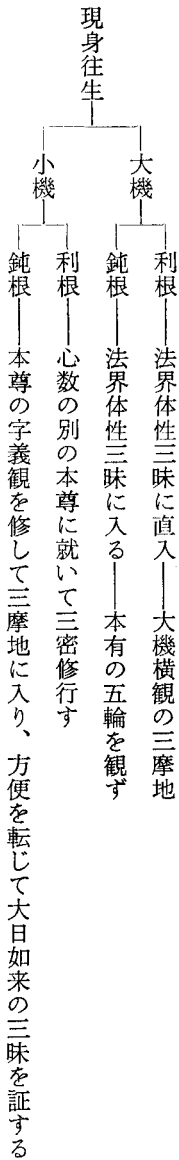 現身往生
大機
利根――法界体性三昧に直入――大機横観の三摩地
鈍根――法界体性三昧に入る――本有の五輪を観ず
小機
利根――心数の別の本尊に就いて三密修行す
鈍根――本尊の字義観を修して三摩地に入り、方便を転じて大日如来の三昧を証する